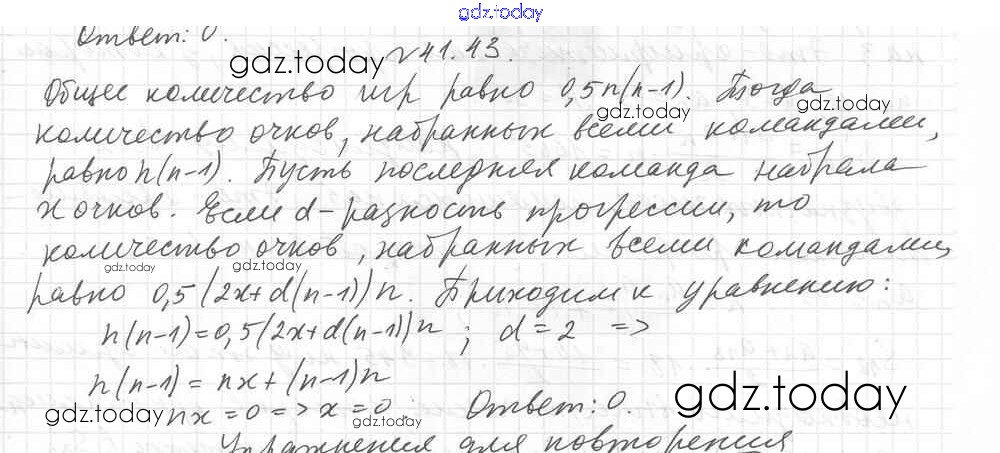 gdz.today
Ответ: 0.
№ 41.43.
gdz.today
Общее количество игр равно 0,5n(n-1). Тогда
gdz.today gdz.today
количество очков, набранных всеми командами,
равно n(n-1). Пусть последняя команда набрала
x очков. Если d - разность прогрессии, то
количество очков, набранных всеми командами,
gdz.today gdz.today
равно 0,5(2x+d(n-1))n. Приходим к уравнению:
n(n-1)=0,5(2x+d(n-1))n; d=2 =>
n(n-1) = nx+(n-1)n
gdz.today nx=0 => x=0. gdz.today Ответ: 0. gdz.today
Упражнения для повторения